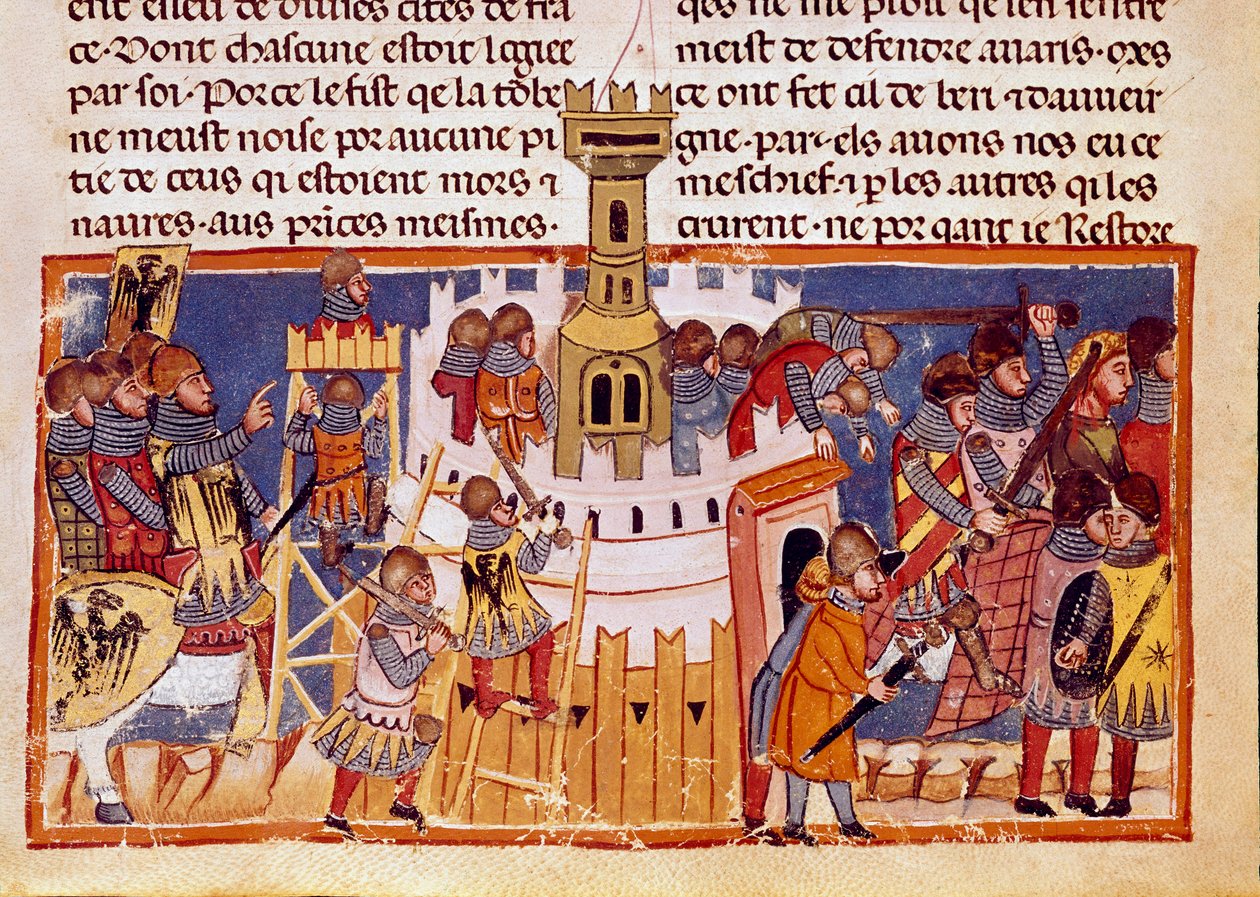 ent elleu de diuses cites de fra
ce. Dont chascune estoit logiee
par soi. Por ce le fist qe la tōbe
ne meust noise por aucune pi
tie de ceus qi estoient mors ⁊
naures. aus prīces meismes.
qes ne me ploit qe ien
meist de defendre auaris. ores
ce ont fet cil de beri ⁊ dauueir
gne. par els auons nos eu ce
meschief. ⁊ p les autres qi les
crurent. ne por qant ie Restore